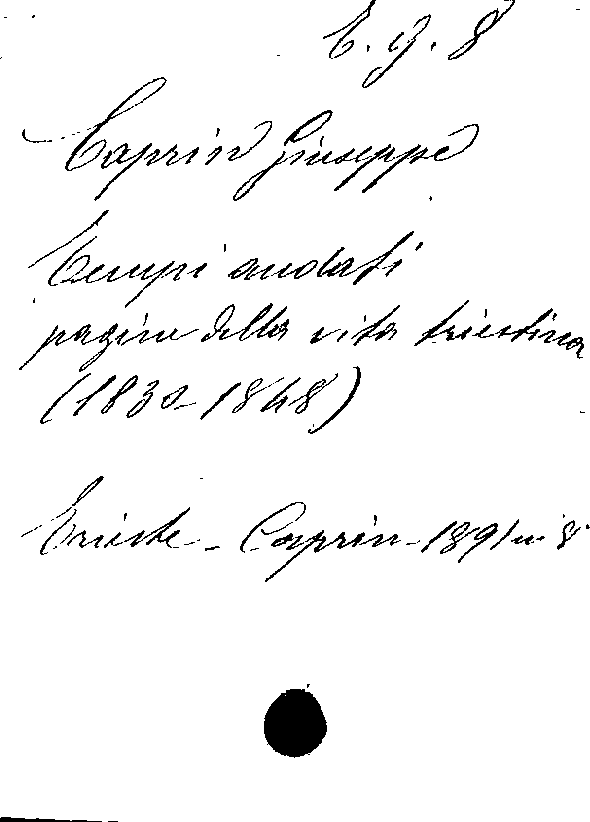 E. g. 8
Caprin Giuseppe
Tempi andati
pagine della vita triestina
(1830-1848)
Trieste - Caprin - 1891 in 8°